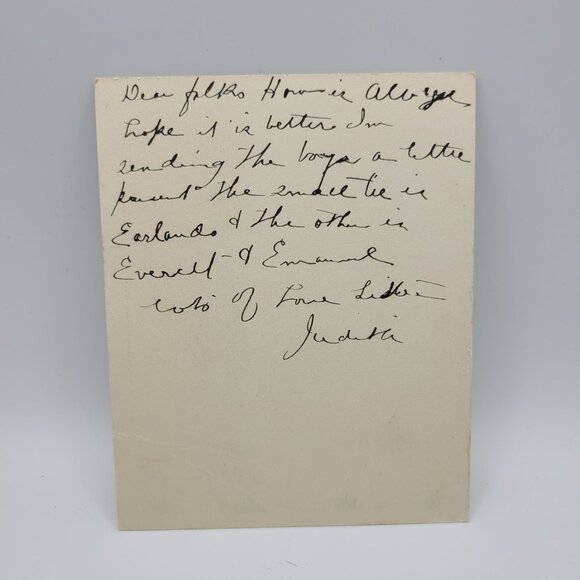 Dear folks How is
hope it is better Im
sending the boys a little
present the small tie is
Earlands & the other is
Everett & Emanuel
lots of Love Sister
Judith